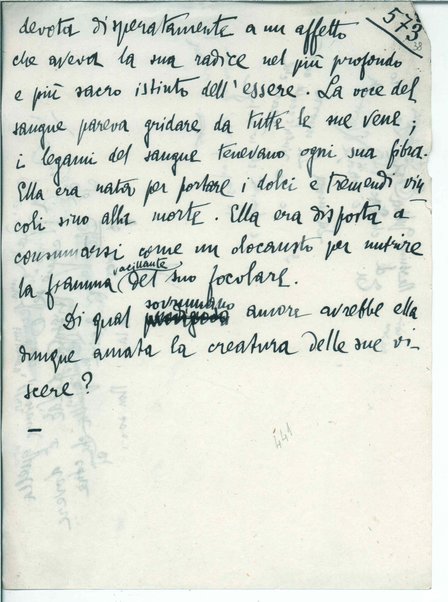 573
38
devota disperatamente a un affetto
che aveva la sua radice nel più profondo
e più sacro istinto dell'essere. La voce del
sangue pareva gridare da tutte le sue vene;
i legami del sangue tenevano ogni sua fibra.
Ella era nata per portare i dolci e tremendi vin
coli sino alla morte. Ella era disposta a
consumarsi come un olocausto per nutrire
vacillante
la fiamma del suo focolare.
sovrumano
Di qual amore avrebbe ella
dunque amata la creatura delle sue vi
scere?
—
441